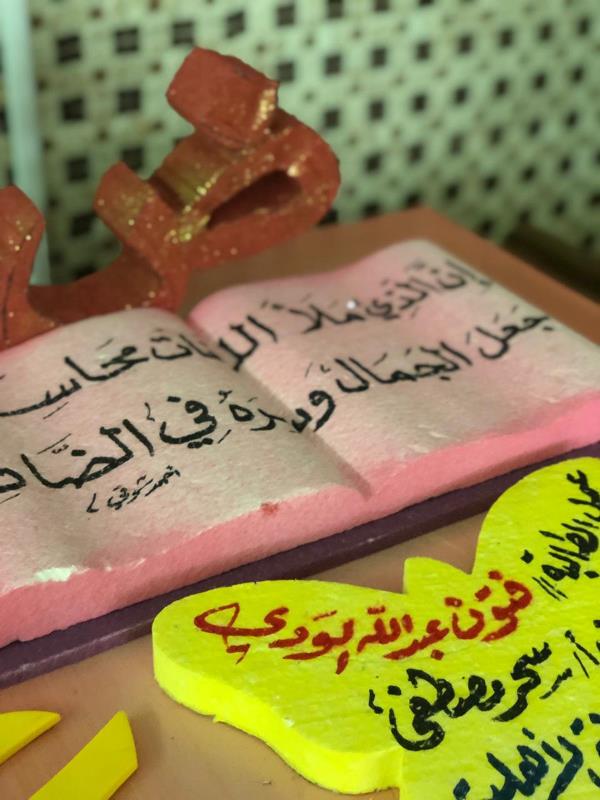 إِنَّ الَّذِي مَلَأَ اللغات محاسـ
جَعَلَ الجَمَالَ وسره في الضاد
أحمد شوقي
عمل الطالبة //
فنون عبدالله
سحر مصطفى